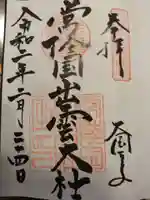 奉拝
常陸国出雲大社
令和二年二月二四日